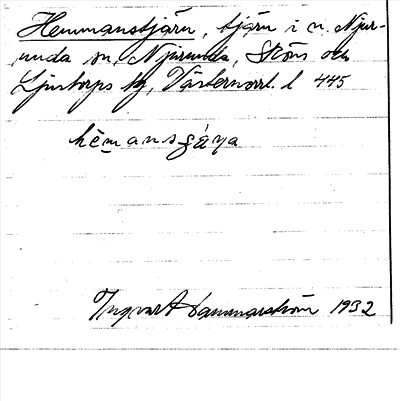 Hemmanstjärn, tjärn i n. Njur-
unda sn, Njurunda, Sköns och
Ljustorps tg, Västernorrl. l 445
hèmanstjáṛṇa
Ingvar Hammarström 1932